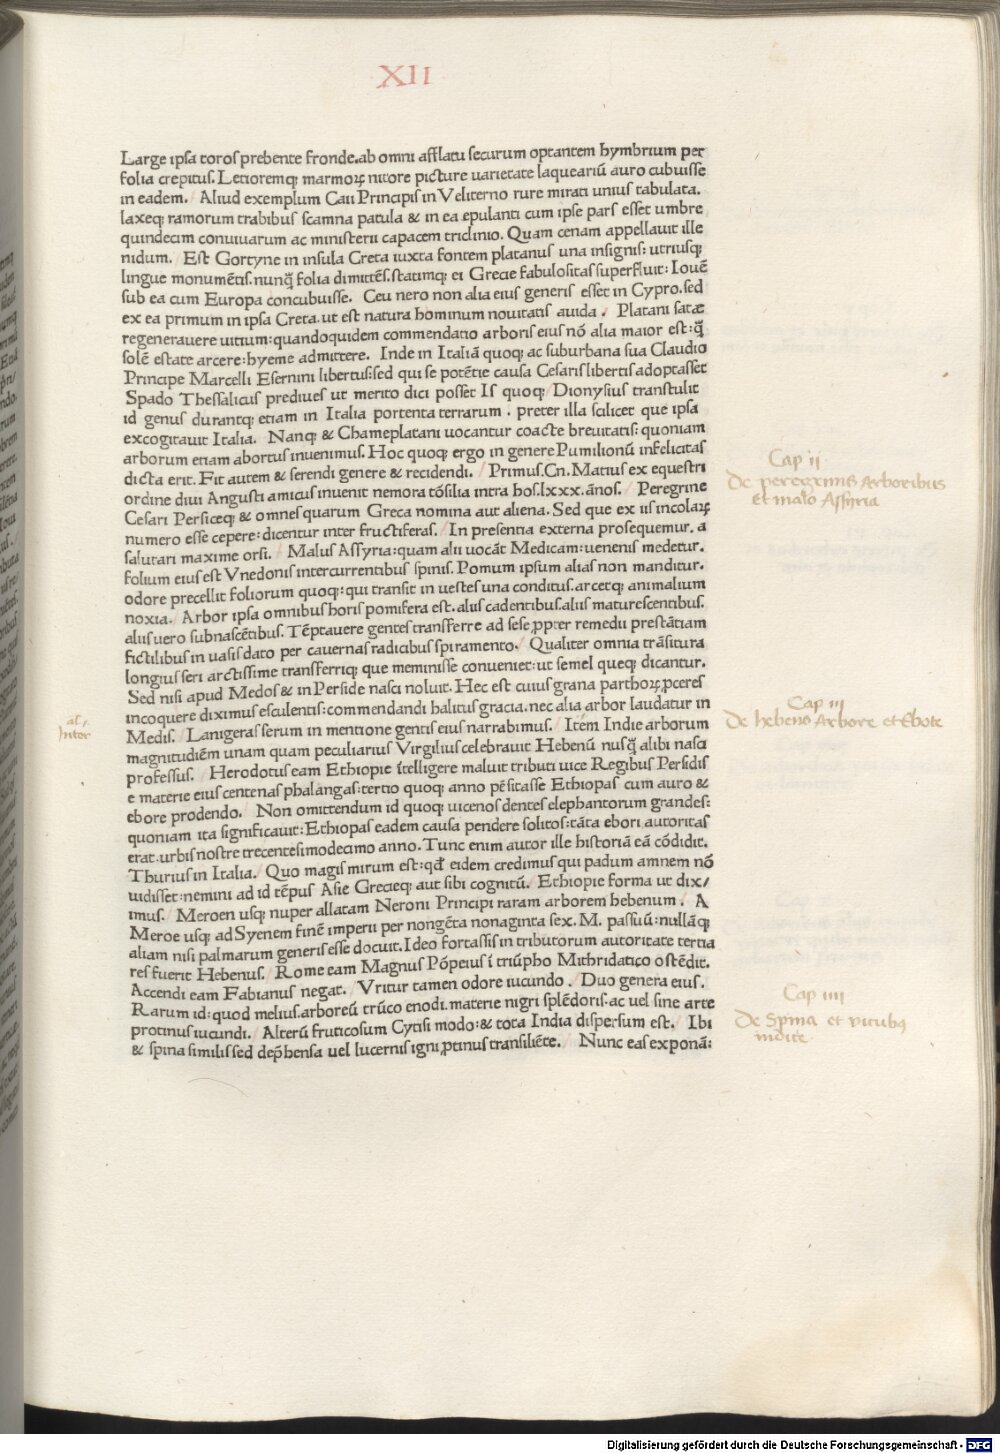 XII
Large ipsa toros prebente fronde.ab omni afflatu securum optantem hymbrium per
folia crepitus. Letioremq; marmorꝝ nitore picture uarietate laqueariū auro cubuisse
in eadem. Aliud exemplum Caii Principis in Veliterno rure mirati unius tabulata.
laxeq; ramorum trabibus scamna patula & in ea epulanti cum ipse pars esset umbre
quindecim conuiuarum ac ministerii capacem triclinio. Quam cenam appellauit ille
nidum. Est Gortyne in insula Creta iuxta fontem platanus una insignis: utriusq;
lingue monumētis. nunq̄ folia dimittēs. statimq; ei Grecie fabulositas superfluit: Iouē
sub ea cum Europa concubuisse. Ceu nero non alia eius generis esset in Cypro. sed
ex ea primum in ipsa Creta. ut est natura hominum nouitatis auida. Platani satæ
regenerauere uitium: quandoquidem commendatio arboris eius nō alia maior est: q̄
solē estate arcere: hyeme admittere. Inde in Italiā quoq; ac suburbana sua Claudio
Principe Marcelli Esernini libertus: sed qui se potētie causa Cesaris libertis adoptasset
Spado Thessalicus prediues ut merito dici posset Is quoq; Dionysius transtulit
id genus durantq; etiam in Italia portenta terrarum. preter illa scilicet que ipsa
excogitauit Italia. Nanq; & Chameplatani uocantur coacte breuitatis: quoniam
arborum etiam abortus inuenimus. Hoc quoq; ergo in genere Pumilionū infelicitas
dicta erit. Fit autem & serendi genere & recidendi. Primus. Cn. Matius ex equestri
ordine diui Angusti amicus inuenit nemora tōsilia intra hos. lxxx. ānos. Peregrine
Cesari Persiceq; & omnes quarum Greca nomina aut aliena. Sed que ex iis incolarꝝ
numero esse cepere: dicentur inter fructiferas. In presentia externa prosequemur. a
salutari maxime orsi. Malus Assyria: quam alii uocāt Medicam: uenenis medetur.
folium eius est Vnedonis intercurrentibus spinis. Pomum ipsum alias non manditur.
odore precellit foliorum quoq;: qui transit in uestes una conditus. arcetq; animalium
noxia. Arbor ipsa omnibus horis pomifera est. alus cadentibus. aliis maturescentibus.
aliis uero subnascētibus. Tēptauere gentes transferre ad sese ꝓpter remedii prestātiam
fictilibus in uasis dato per cauernas radicibus spiramento. Qualiter omnia trāsitura
longius seri arctissime transferriq; que meminisse conueniet: ut semel queq; dicantur.
Sed nisi apud Medos & in Perside nasci noluit. Hec est cuius grana parthorꝝ ꝓceres
incoquere diximus esculentis: commendandi halitus gracia. nec alia arbor laudatur in
Medis. Lanigeras serum in mentione gentis eius narrabimus. Item Indie arborum
magnitudiēm unam quam peculiarius Virgilius celebrauit Hebenū nusq̄ alibi nasci
professus. Herodotus eam Ethiopie ītelligere maluit tributi uice Regibus Persidis
e materie eius centenas phalangas: tertio quoq; anno pēsitasse Ethiopas cum auro &
ebore prodendo. Non omittendum id quoq; uicenos dentes elephantorum grandes:
quoniam ita significauit: Ethiopas eadem causa pendere solitos: tāta ebori autoritas
erat. urbis nostre trecentesimodecimo anno. Tunc enim autor ille historiā eā cōdidit.
Thurius in Italia. Quo magis mirum est: qđ eidem credimus qui padum amnem nō
uidisset: nemini ad id tēpus Asie Grecieq; aut sibi cognitū. Ethiopie forma ut dix/
imus. Meroen usq; nuper allatam Neroni Principi raram arborem hebenum. A
Meroe usq; ad Syenem finē imperii per nongēta nonaginta sex. M. passuū: nullāq;
aliam nisi palmarum generis esse docuit. Ideo fortassis in tributorum autoritate tertia
res fuerit Hebenus. Rome eam Magnus Pōpeius ī triūpho Mithridatico ostēdit.
Accendi eam Fabianus negat. Vritur tamen odore iucundo. Duo genera eius.
Rarum id: quod melius. arboreū trūco enodi. materie nigri splēdoris. ac uel sine arte
protinus iucundi. Alterū fruticosum Cytisi modo: & tota India dispersum est. Ibi
& spina similis sed dep̄hensa uel lucernis igni ꝓtinus transiliēte. Nunc eas exponā:
Cap ij
De peregrinis Arboribus
Et malo Assyria
al.
Inter
Cap iij
De hebeno Arbore et Ebote
Cap iiij
De Spina et vitubꝫ
indite
Digitalisierung gefördert durch die Deutsche Forschungsgemeinschaft - DFG